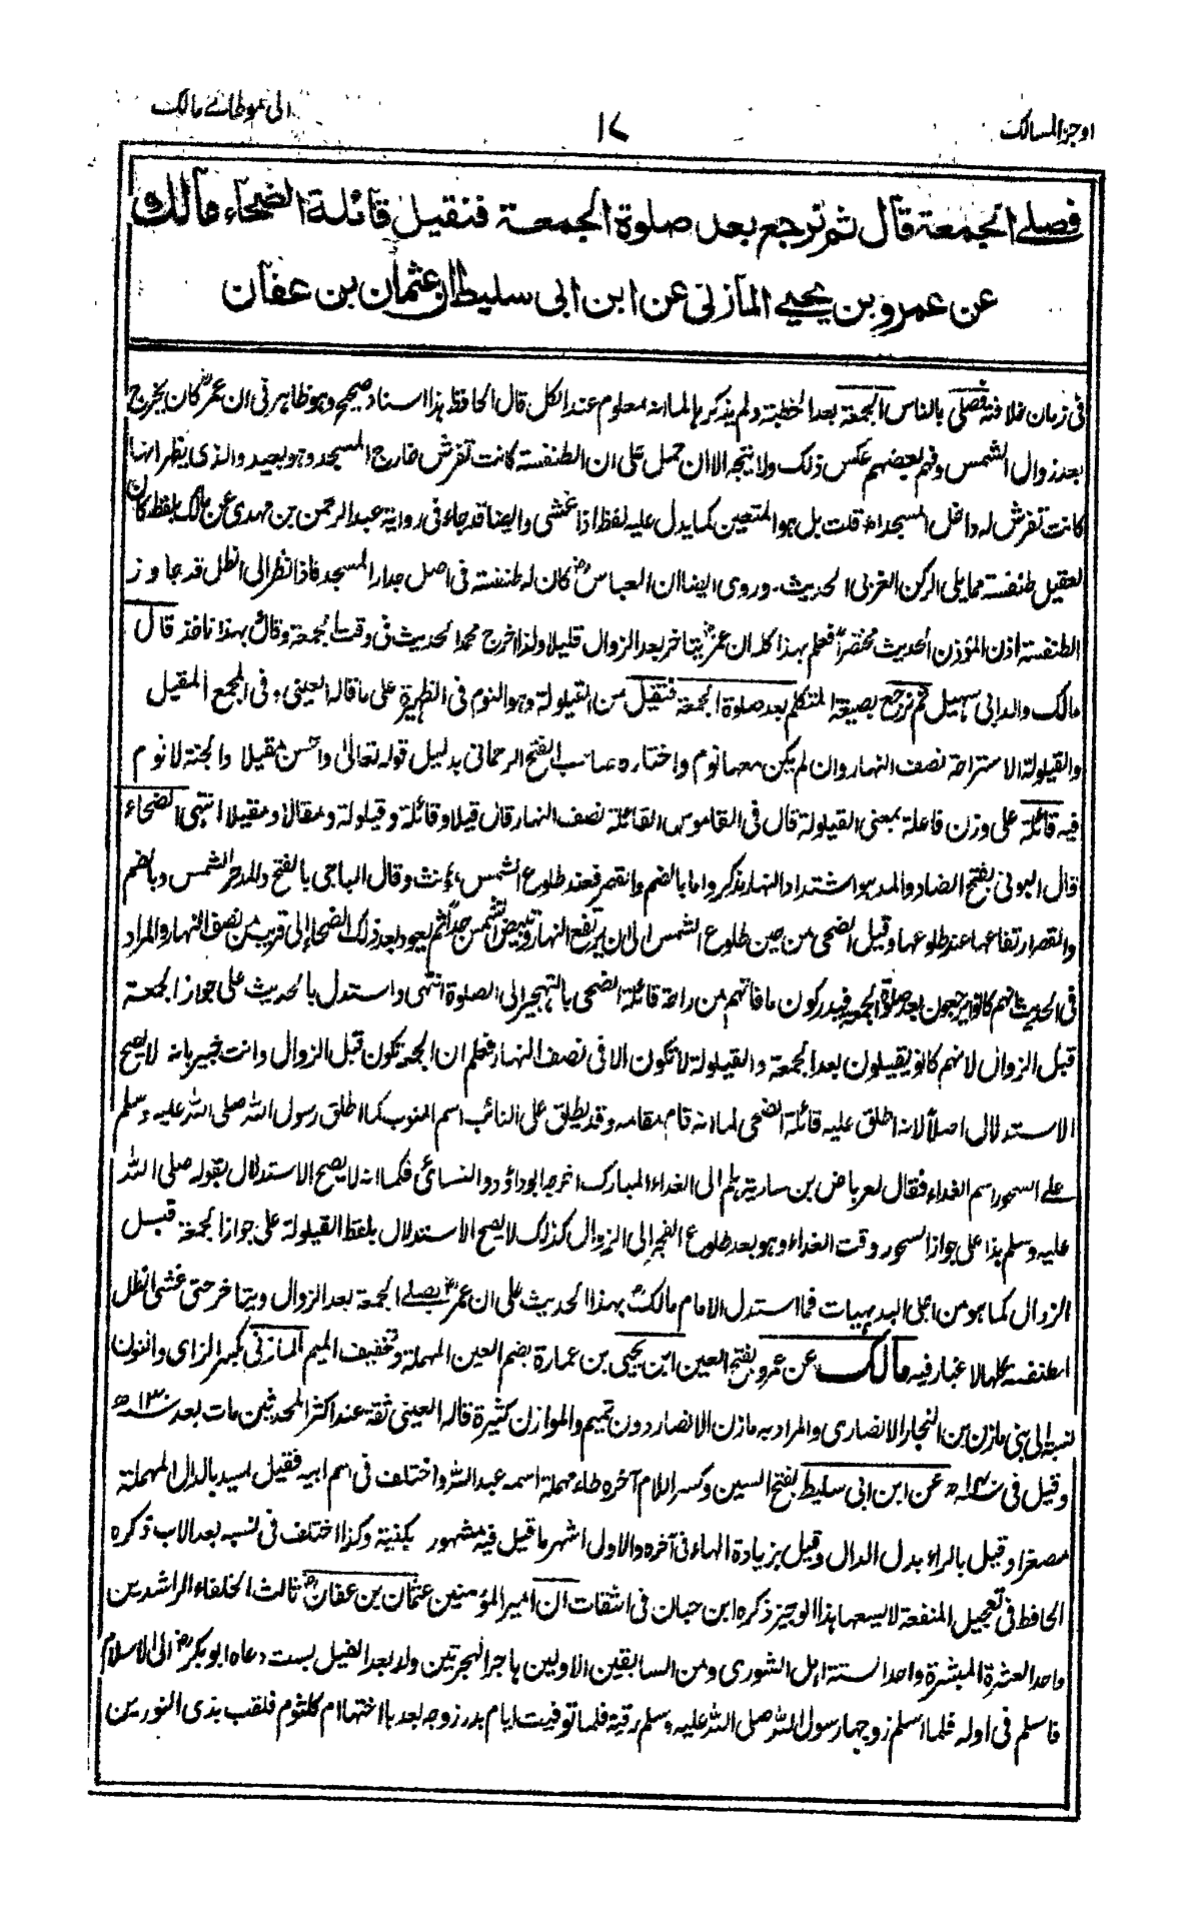 اوجز المسالك
١٧
الى موطا مالك
فصلى الجمعة قال ثم نرجع بعد صلوة الجمعة فنقيل قائلة الضحاء مالك
عن عمرو بن يحيى المازنى عن ابن ابى سليط ان عثمان بن عفان
فى زمان خلافته فصلى بالناس الجمعة بعد الخطبة ولم يذكرها لما انه معلوم عند الكل قال الحافظ هذا اسناد صحيح وهو ظاهر فى ان عمر كان يخرج
بعد زوال الشمس وفهم بعضهم عكس ذلك ولا يتجه الا ان حمل على ان الطنفسة كانت تفرش خارج المسجد وهو بعيد والذى يظهر انها
كانت تفرش له داخل المسجد اه قلت بل هو المتعين كما يدل عليه لفظ اذا غشى وايضا قد جاء فى رواية عبد الرحمن بن مهدى عن مالك بلفظ كان
لعقيل طنفسة مما يلى الركن الغربى الحديث۔ وروى ايضا ان العباس رض كان له طنفسة فى اصل جدار المسجد فاذا نظر الى الظل قد جاوز
الطنفسة اذن المؤذن الحديث مختصرا فعلم بهذا كله ان عمر رض يتاخر بعد الزوال قليلا ولذا اخرج محمد الحديث فى وقت الجمعة وقال بهذا ناخذ قال
مالك والد ابى سهيل ثم نرجع بصيغة المتكلم بعد صلوة الجمعة فنقيل من القيلولة وهو النوم فى الظهيرة على ما قاله العينى، وفى المجمع المقيل
والقيلولة الاستراحة نصف النهار وان لم يكن معها نوم واختاره صاحب الفتح الرحمانى بدليل قوله تعالى واحسن مقيلا والجنة لا نوم
فيه قائلة على وزن فاعلة بمعنى القيلولة قال فى القاموس القائلة نصف النهار قال قيلا وقائلة وقيلولة ومقالا ومقيلا انتهى الضحاء
قال البونى بفتح الضاد والمد هو اشتداد النهار مذكر واما بالضم والقصر فعند طلوع الشمس، مؤنث وقال الباجى بالفتح والمد حر الشمس وبالضم
والقصر ارتفاعها عند طلوعها وقيل الضحى من حين طلوع الشمس الى ان يرتفع النهار وتبيض الشمس جدا ثم يعود بعد ذلك الضحاء الى قريب من نصف النهار والمراد
فى الحديث انهم كانوا يرجعون بعد صلوة الجمعة فيدركون ما فاتهم من راحة قائلة الضحى بالتهجير الى الصلوة انتهى واستدل بالحديث على جواز الجمعة
قبل الزوال لانهم كانوا يقيلون بعد الجمعة والقيلولة لا تكون الا فى نصف النهار فعلم ان الجمعة تكون قبل الزوال وانت خبير بانه لا يصح
الاستدلال اصلا لانه اطلق عليه قائلة الضحى لما انه قام مقامه وقد يطلق على النائب اسم المنوب كما اطلق رسول الله صلى الله عليه وسلم
على السحور اسم الغداء فقال لعرباض بن سارية هلم الى الغداء المبارك اخرجه ابو داؤد والنسائى فكما انه لا يصح الاستدلال بقوله صلى الله
عليه وسلم هذا على جواز السحور وقت الغداء وهو بعد طلوع الفجر الى الزوال كذلك لا يصح الاستدلال بلفظ القيلولة على جواز الجمعة قبل
الزوال كما هو من اجلى البديهيات فما استدل الامام مالك بهذا الحديث على ان عمر رض يصلى الجمعة بعد الزوال ويتاخر حتى غشى الظل
الطنفسة كلها لا غبار فيه مالك عن عمرو بفتح العين ابن يحيى بن عمارة بضم العين المهملة وتخفيف الميم المازنى بكسر الزاى والنون
نسبة الى بنى مازن بن النجار الانصارى والمراد به مازن الانصار دون تميم والموازن كثيرة قاله العينى ثقة عند اكثر المحدثين مات بعد سنه ١٣٠ ه
وقيل فى سنه ١٤٠ ه عن ابن ابى سليط بفتح السين وكسر اللام آخره طاء مهملة اسمه عبد الله واختلف فى اسم ابيه فقيل اسيد بالدال المهملة
مصغرا وقيل بالراء بدل الدال وقيل بزيادة الهاء فى آخره والاول اشهر ما قيل فيه مشهور بكنية وكذا اختلف فى نسبه بعد الاب ذكره
الحافظ فى تعجيل المنفعة لا يسعها هذا الوجيز ذكره ابن حبان فى الثقات ان امير المؤمنين عثمان بن عفان رض ثالث الخلفاء الراشدين
واحد العشرة المبشرة واحد الستة اهل الشورى ومن السابقين الاولين هاجر الهجرتين ولد بعد الفيل بست دعاه ابو بكر رض الى الاسلام
فاسلم فى اوله فلما اسلم زوجها رسول الله صلى الله عليه وسلم رقية فلما توفيت ايام بدر زوجه بعد باختها ام كلثوم فلقب بذى النورين